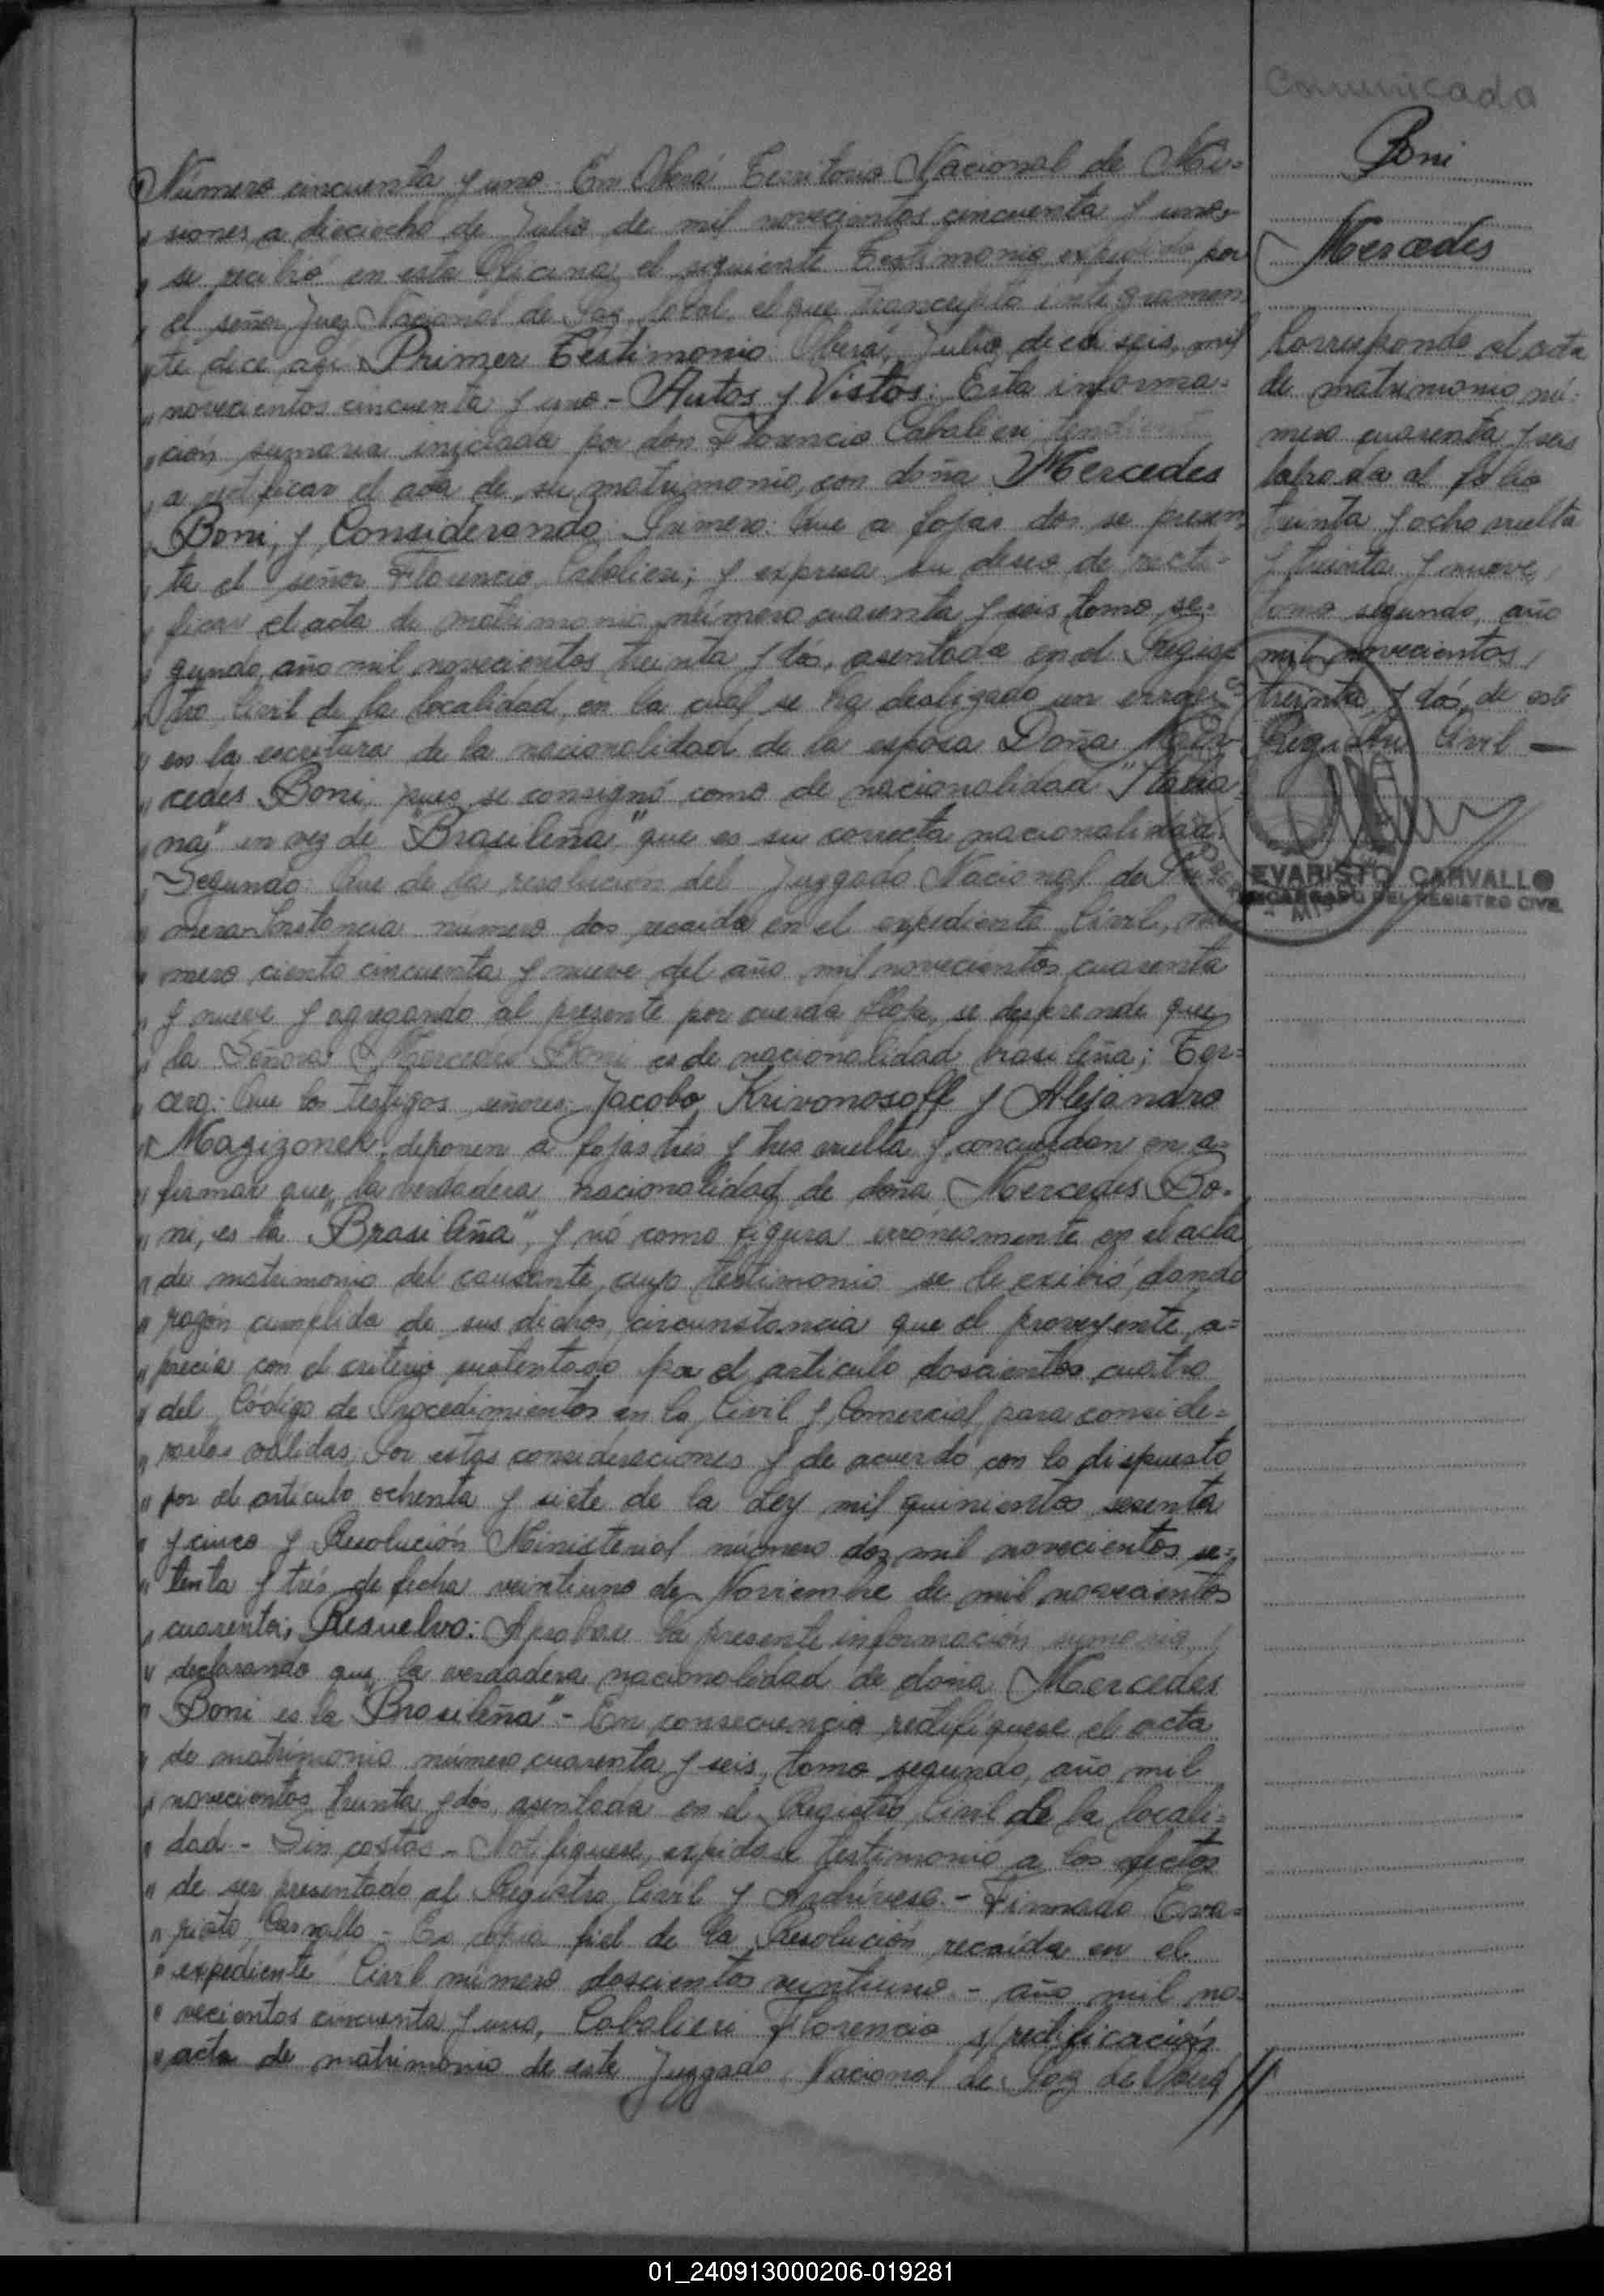 Comunicada
Número cincuenta y uno. En Oberá Territorio Nacional de Mi=
" siones a dieciocho de Julio de mil novecientos cincuenta y uno,
" se recibió en esta Oficina el siguiente Testimonio expedido por
" el señor Juez Nacional de Paz local, el que transcripto integramen
" te dice así: Primer Testimonio. Oberá, Julio dieciseis, mil
" novecientos cincuenta y uno.- Autos y Vistos: Esta informa=
" ción sumaria iniciada por don Florencio Cabalieri tendiente
" a rectificar el acta de su matrimonio, con doña Mercedes
" Boni, y Considerando: Primero: Que a fojas dos se presen,
" ta el señor Florencio Cabalieri; y expresa su deseo de recti=
" ficar el acta de matrimonio número cuarenta y seis tomo se=
" gundo, año mil novecientos treinta y dós, asentada en el Regis=
" tro Civil de la localidad, en la cual se ha deslizado un error
" en la escritura de la nacionalidad de la esposa Doña Mer
" cedes Boni, pues se consignó como de nacionalidad "Italia
" na" en vez de "Brasileña" que es su correcta nacionalidad.
" Segundo: Que de la resolución del Juzgado Nacional de Pri
" mera Instancia número dos, recaída en el expediente Civil, nú
" mero ciento cincuenta y nueve del año mil novecientos cuarenta
" y nueve y agregando al presente por cuerda floja, se desprende que
" la Señora Mercedes Boni es de nacionalidad brasileña; Ter=
" cero: Que los testigos señores: Jacobo Krivonosoff y Alejandro
" Mazizonek, deponen a fojas trés y tres vuelta y concuerdan en a=
" firmar que la verdadera nacionalidad de doña Mercedes Bo=
" ni, es la "Brasileña", y nó como figura erróneamente en el acta
" de matrimonio del causante, cuyo testimonio se le exibió, dando
" razón cumplida de sus dichos, circunstancia que el proveyente a=
" precia con el criterio sustentado por el artículo doscientos cuatro
" del Código de Procedimientos en lo Civil y Comercial, para conside=
" rarlas válidas. Por estas consideraciones y de acuerdo con lo dispuesto
" por el artículo ochenta y siete de la Ley mil quinientos sesenta
" y cinco y Resolución Ministerial número dos mil novecientos se=
" tenta y trés de fecha veintiuno de Noviembre de mil novecientos
" cuarenta; Resuelvo: Aprobar la presente información sumaria,
" declarando que la verdadera nacionalidad de doña Mercedes
" Boni es la "Brasileña".- En consecuencia rectifíquese el acta
" de matrimonio número cuarenta y seis, tomo segundo, año mil
" novecientos treinta y dós, asentada en el Registro Civil de la locali=
" dad.- Sin costas.- Notifíquese, expídase testimonio a los efectos
" de ser presentado al Registro Civil y Archívese.- Firmado Eva=
" risto Carvallo.- Es copia fiel de la Resolución recaída en el
" expediente Civil número doscientos veintiuno.- año mil no=
" vecientos cincuenta y uno, Cabalieri Florencio s/rectificación
" acta de matrimonio de este Juzgado Nacional de Paz de Oberá //
Boni
Mercedes
Corresponde al acta
de matrimonio nú=
mero cuarenta y seis
labrada al folio
treinta y ocho vuelta
y treinta y nueve,
tomo segundo, año
mil novecientos
treinta y dós, de este
Registro Civil —
EVARISTO CARVALLO
ENCARGADO DEL REGISTRO CIVIL
01_240913000206-019281